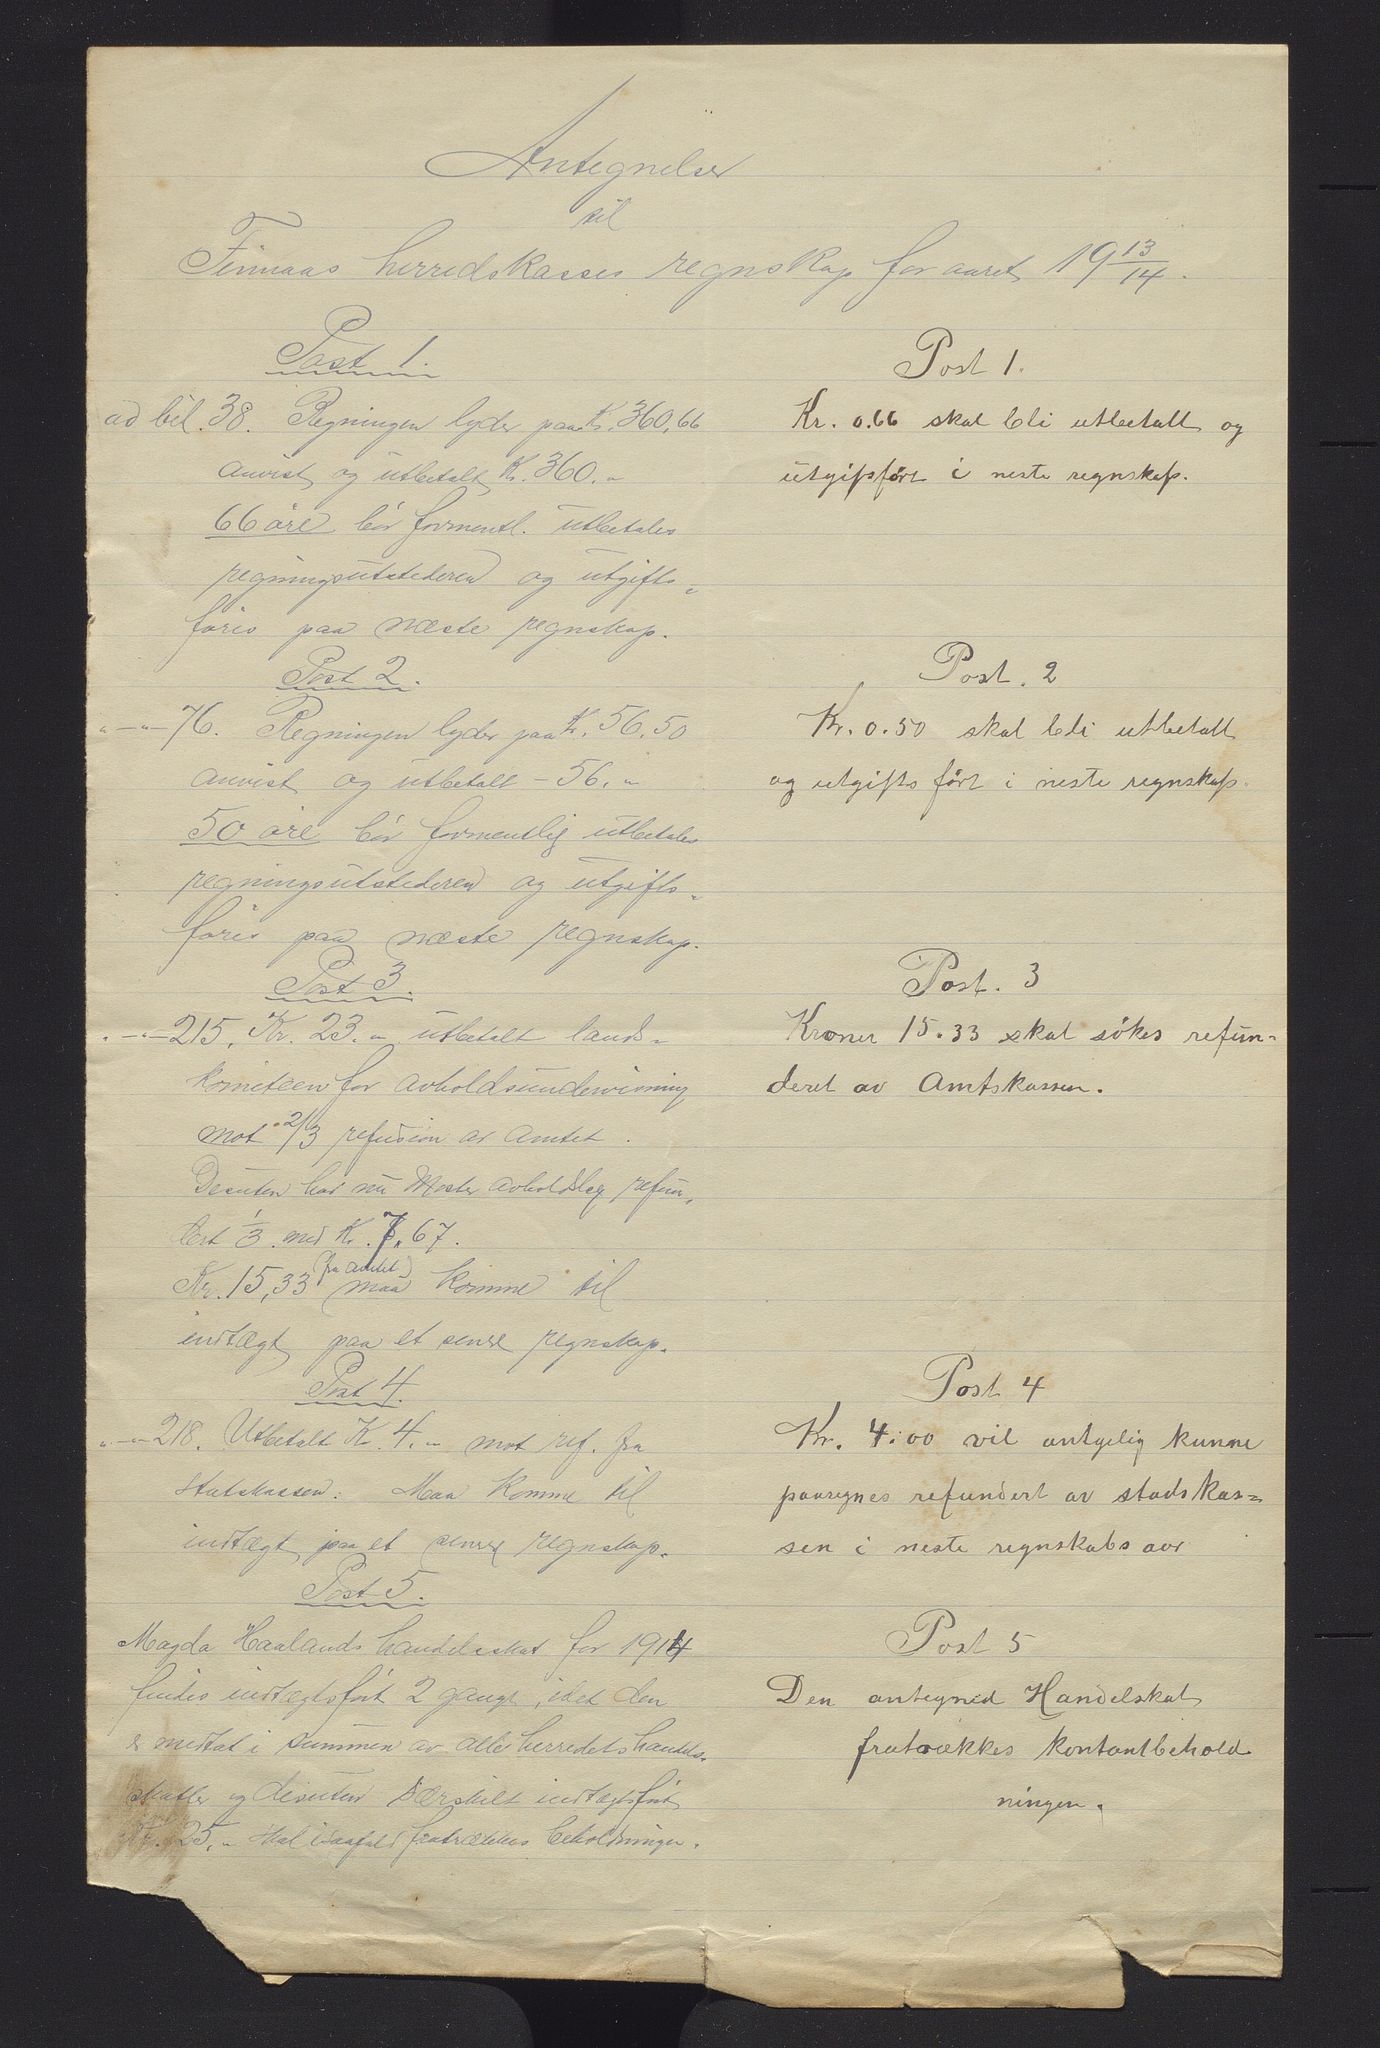 Antegnelser
til
Finnaas herredskasses regnskap for aaret 19 13/14.
Post 1.
ad bil. 38. Regningen lyder paa Kr. 360,66
anvist og utbetalt Kr. 360.-
66 øre bør formentl. utbetales
regningsutstederen og utgifts-
føres paa næste regnskap.
Post 2.
"-"-76. Regningen lyder paa Kr. 56.50
anvist og utbetalt - 56.-
50 øre bør formentlig utbetales
regningsutstederen og utgifts-
føres paa næste regnskap.
Post 3.
"-"-215. Kr. 23.- utbetalt lands-
komiteen for avholdsundervisning
mot 2/3 refusion av Amtet.
Desuten har nu Moster avholdslag refun-
dert 1/3 med Kr. 7,67.
Kr. 15,33 (fra amtet) maa komme til
indtægt paa et senere regnskap.
Post 4.
"-"-218. Utbetalt Kr. 4.- mot ref. fra
Statskassen. Maa komme til
indtægt paa et senere regnskap.
Post 5.
Magda Haalands handelsskat for 1914
findes indtægtsført 2 gange, idet den
er medtat i summen av alle herredets handels-
skatter og desuten særskilt indtægtsført
Kr. 25,- skal isaafald fratrækkes beholdningen.
Post 1.
Kr. 0.66 skal bli utbetalt og
utgifsført i neste regnskap.
Post. 2
Kr. 0.50 skal bli utbetalt
og utgifts ført i neste regnskap.
Post. 3
Kroner 15.33 skal søkes refun-
deret av Amtskassen.
Post 4
Kr. 4.00 vil antgelig kunne
paaregnes refundert av stadskas-
sen i neste regnskabs aar
Post 5
Den antegned Handelskat
fratrækkes kontantbehold
ningen.